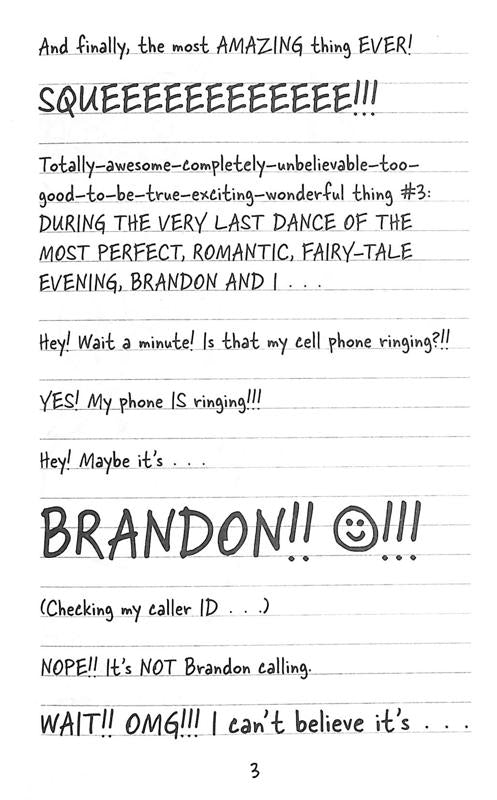 And finally, the most AMAZING thing EVER!
SQUEEEEEEEEEEEEE!!!
Totally-awesome-completely-unbelievable-too-
good-to-be-true-exciting-wonderful thing #3:
DURING THE VERY LAST DANCE OF THE
MOST PERFECT, ROMANTIC, FAIRY-TALE
EVENING, BRANDON AND I . . .
Hey! Wait a minute! Is that my cell phone ringing?!!
YES! My phone IS ringing!!!
Hey! Maybe it's . . .
BRANDON!! ☺!!!
(Checking my caller ID . . .)
NOPE!! It's NOT Brandon calling.
WAIT!! OMG!!! I can't believe it's . . .
3